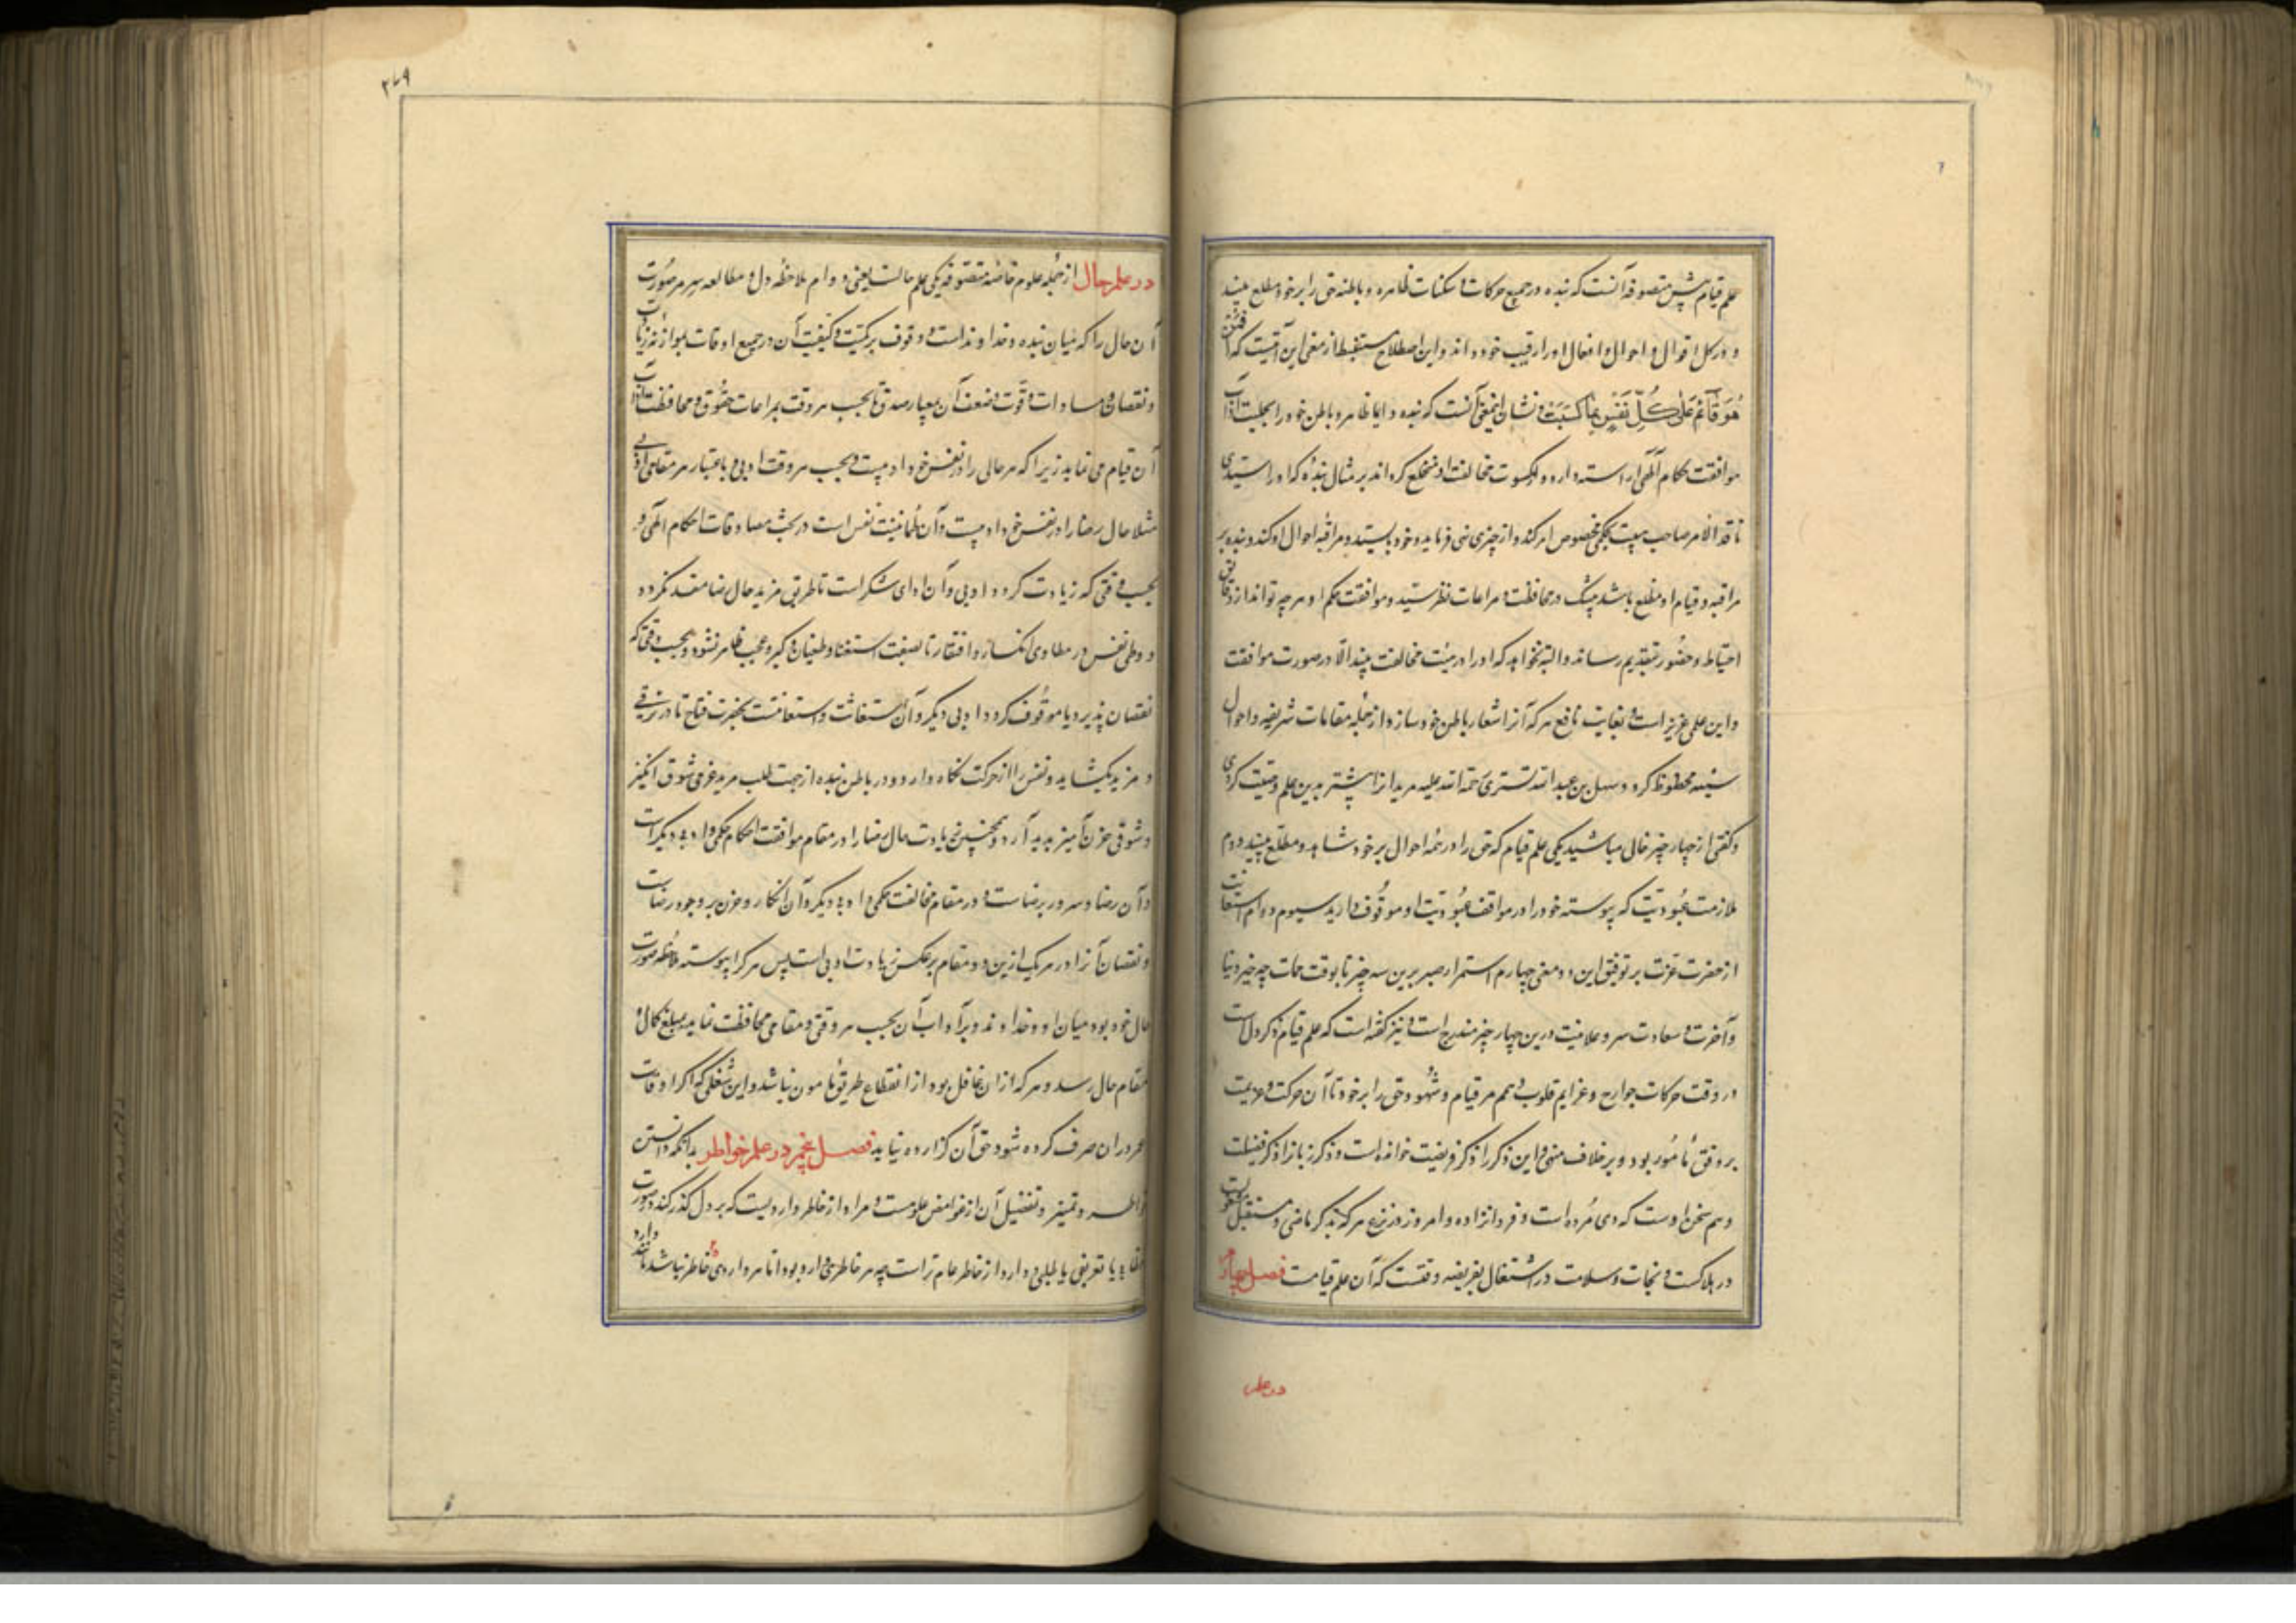 علم قیام پیش متصوفه آنست که بنده در جمیع حرکات و سکنات ظاهره و باطنه حق را بر خود مطلع بیند
و در کل اقوال و احوال و افعال او را رقیب خود داند و این اصطلاح مستنبط از معنی این آیتست که افمن
هُوَ قَآئِمٌ عَلٰی كُلِّ نَفْسٍ بِمَا كَسَبَتْ و نشان اینمعنی آنست که بنده دایما ظاهر و باطن خود را بحلیت آداب
موافقت احکام آلهی آراسته دارد و از کسوت مخالفت او منخلع گرداند بر مثال بندهٔ که او را سیّدی
نافذ الامر صاحب هیبت بحکمی مخصوص امر کند و از چیزی نهی فرماید و خود بایستد و مراقبهٔ احوال او کند و بنده بر
مراقبه و قیام او مطلع باشد بیشک در محافظت و مراعات نظر سیّد و موافقت حکم او هر چه تواند از دقایق
احتیاط و حضور بتقدیم رساند و البته نخواهد که او را در هیئت مخالفت بیند الا در صورت موافقت
و این علمی عزیز است و بغایت نافع هر که آنرا شعار باطن خود سازد از جمله مقامات شریفه و احوال
سنیه محظوظ گردد و سهل بن عبد الله تستری رحمة الله علیه مریدانرا پیشتر بدین علم وصیّت کردی
و گفتی از چهار چیز خالی مباشید یکی علم قیام که حق را در همه احوال بر خود شاهد و مطلّع بینید دوم
ملازمت عبُودیّت که پیوسته خود را در مواقف عبُودیّت او موقُوف دارید سیوم دوام استعانت
از حضرت عزّت بر توفیق این دو معنی چهارم استمرار صبر برین سه چیز تا بوقت ممات چه خیر دنیا
و آخرت و سعادت سر و علانیت درین چهار چیز مندرج است و نیز گفته است که علم قیام ذکر دل است
در وقت حرکات جوارح و عزایم قلوب و هم مر قیام و شُهود حق را بر خود تا آن حرکت و عزیمت
بر وفق مأمُور بود و بر خلاف منهی و این ذکر را ذکر فریضت خوانده است و ذکر زبانرا ذکر فضیلت
و هم سخن اوست که دی مُرده است و فردا نزاده و امروز در نزع هر که بذکر ماضی و مستقبل مشغولست
در هلاکست و نجات و سلامت در اشتغال بفریضه وقتست که آن علم قیامست فصل چهارم
در علم
۲۷۹
در علم حال از جمله علوم خاصه متصوفه یکی علم حالست یعنی دوام ملاحظهٔ دل و مطالعه سر مر صُورت
آن حال را که میان بنده و خداوند است و وقوف بر کمیّت و کیفیّت آن در جمیع اوقات بموازنه زیادت
و نقصان و مساوات و قوّت و ضعف آن بمعیار صدق تا بحسب هر وقت بمراعات حقُوق و محافظت آداب
آن قیام می نماید زیرا که هر حالی را در نفس خود ادبیست و بحسب هر وقت ادبی و باعتبار هر مقامی ادبی
مثلا حال رضا را در نفس خود ادبیست و آن طُمانینت نفس است در تحت مصادفات احکام الهی و
بحسب وقتی که زیادت گردد ادبی و آن ادای شکر است تا طریق مزید حال رضا منسد نگردد
و وطی نفس در مطاوی انکسار و افتقار تا بصفت استغنا و طغیان و کبر و عجب ظاهر نشود و بحسب وقتی که
نقصان پذیرد یا موقُوف گردد ادبی دیگر و آن استغاثت و استعانت بحضرت فتاح تا در ترقی
و مزید بگشاید و نفس را از حرکت نگاه دارد و در باطن بنده از جهت طلب مزید عزمی شوق انگیز
و شوقی حزن آمیز پدید آرد و همچنین زیادت حال رضا را در مقام موافقت احکام حکمی و ادبی دیگر است
و آن رضا و سرور برضاست و در مقام مخالفت حکمی و ادبی دیگر و آن انکار و حزن بر وجود رضاست
و نقصان آنرا در هر یک ازین دو مقام بر عکس زیادت ادبی است پس هر کرا پیوسته ملاحظه صورت
حال خود بود میان او و خداوند و بر آداب آن بحسب هر وقتی و مقامی محافظت نماید بمبلغ کمال و
مقام حال رسد و هر که از آن غافل بود از انقطاع طریق مامون نباشد و این شغلی که اگر اوقات
عمر در آن صرف کرده شود حق آن گزارده نیاید فصل پنجم در علم خواطر بدانکه دانستن
خواطر و تمییز و تفضیل آن از غوامض علومست و مراد از خاطر واردیست که بر دل گذر کند در صورت
خطابی یا تعریفی یا طلبی و وارد از خاطر عام تر است چه هر خاطری وارد بود اما هر واردی خاطر نباشد مانند وارد